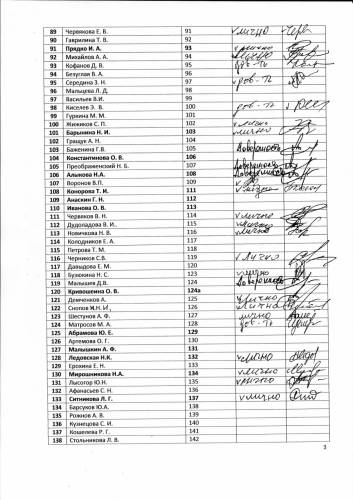 89 Червякова Е. В. 91 лично
90 Гаврилина Т. В. 92
91 Прядко И. А. 93 лично
92 Михайлов А. А. 94 лично
93 Кофанов Д. В. 95 дов-ть
94 Безуглая В. А. 96
95 Середина З. Н. 97 дов-ть
96 Мальцева Л. Д. 98
97 Васильев В.И. 99
98 Киселев Э. В. 100 дов-ть
99 Гуркина М. М. 101
100 Жижиков С. П. 102 лично
101 Барынина Н. И. 103 лично
102 Грящук А. Н. 104
103 Баженина Г.В. 105 Доверенность
104 Константинова О. В. 106
105 Преображенский Н. Б. 107 Доверенность
106 Алынова Н.А. 108 Доверенность
107 Воронов В.П. 109
108 Конорева Т. И. 111 лично
109 Анаскин Г. Н. 112
110 Иванова О. В. 113
111 Червяков В. Н. 114 лично
112 Дудоладова В. И. 115 лично
113 Новичкова Н. В. 116 лично
114 Колодников Е. А. 117
115 Петрова Т. М. 118
116 Черников С.В. 119 лично
117 Давыдова Е. М. 120
118 Бузюкина Н. С. 123 лично
119 Малышев Д.В. 124 Доверенность
120 Кривошеина О. В. 124а
121 Демченков А. 125 лично
122 Снопов И.Н. 126 лично
123 Шестунов А. Ф. 127 лично
124 Матросов М. А. 128 дов-ть
125 Абрамова Ю. Е. 129
126 Артемова О. Г. 130
127 Малышкин А. Ф. 131
128 Ледовская Н.К. 132 лично
129 Ерохина Е. Н. 133
130 Мирошникова Н.А. 134 лично
131 Лысогор Ю.Н. 135 лично
132 Афанасьев С. Н. 136
133 Ситникова Л. Г. 137 лично
134 Барсуков Ю.А. 138
135 Рожнов А. В. 139
136 Кузнецова С. И. 140
137 Кошелева Р. Г. 141
138 Стольникова Л. В. 142
3